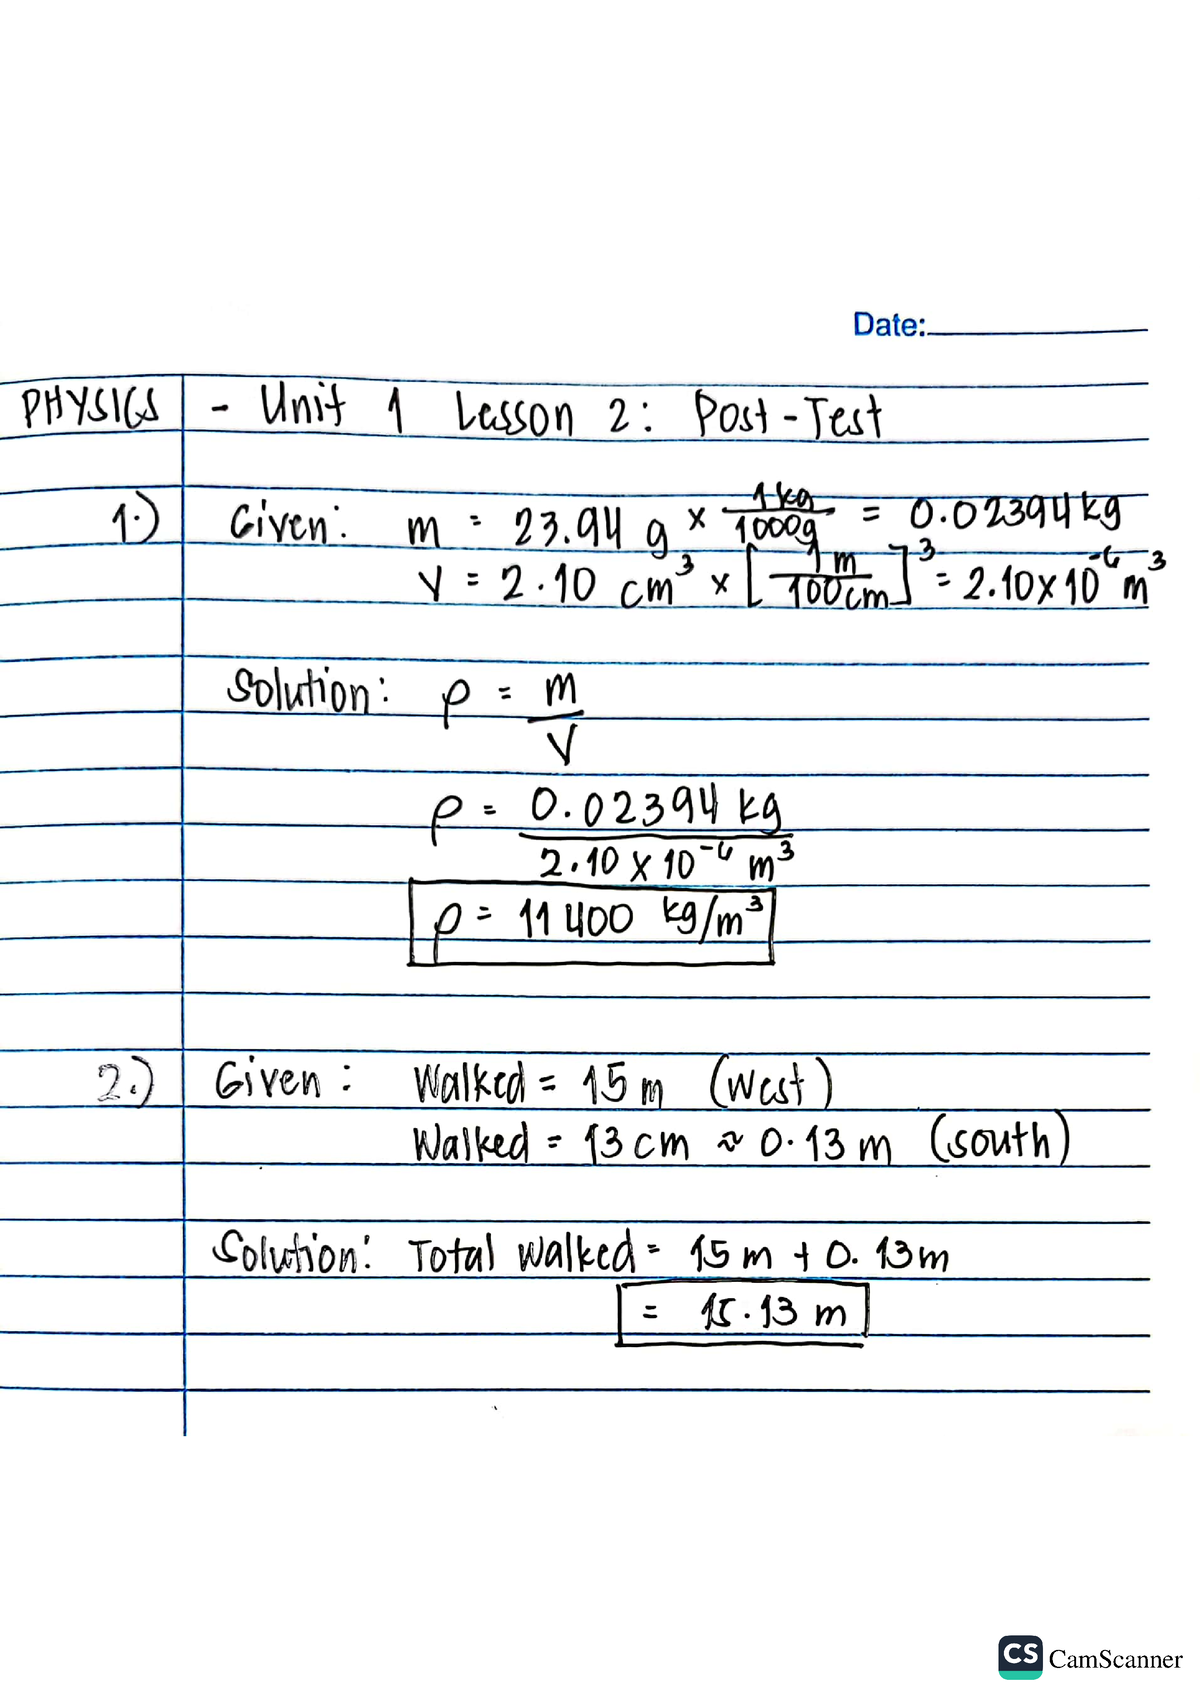 Date:
PHYSICS - Unit 1 Lesson 2: Post-Test
1.) Given: m = 23.94 g × 1 kg / 1000g = 0.02394 kg
V = 2.10 cm³ × [1 m / 100cm]³ = 2.10 x 10⁻⁶ m³
Solution: ρ = m / V
ρ = 0.02394 kg / 2.10 x 10⁻⁶ m³
ρ = 11 400 kg/m³
2.) Given: Walked = 15 m (west)
Walked = 13 cm ≈ 0.13 m (south)
Solution: Total walked = 15 m + 0.13m
= 15.13 m
CS CamScanner